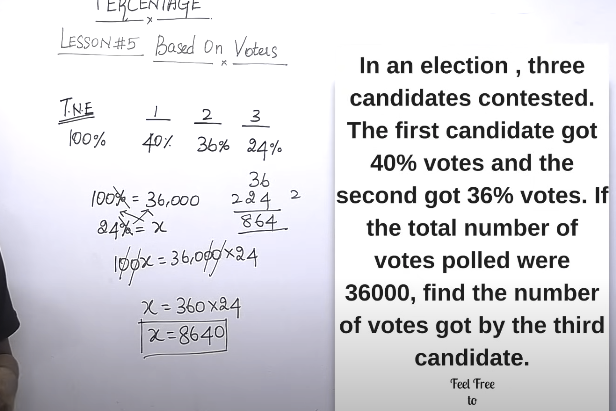 PERCENTAGE
LESSON#5 Based On Voters
T.N.E 1 2 3
100% 40% 36% 24%
100% = 36,000
24% = x
36
224 2
864
100x = 36,000 × 24
x = 360 × 24
x = 8640
In an election , three
candidates contested.
The first candidate got
40% votes and the
second got 36% votes. If
the total number of
votes polled were
36000, find the number
of votes got by the third
candidate.
Feel Free
to